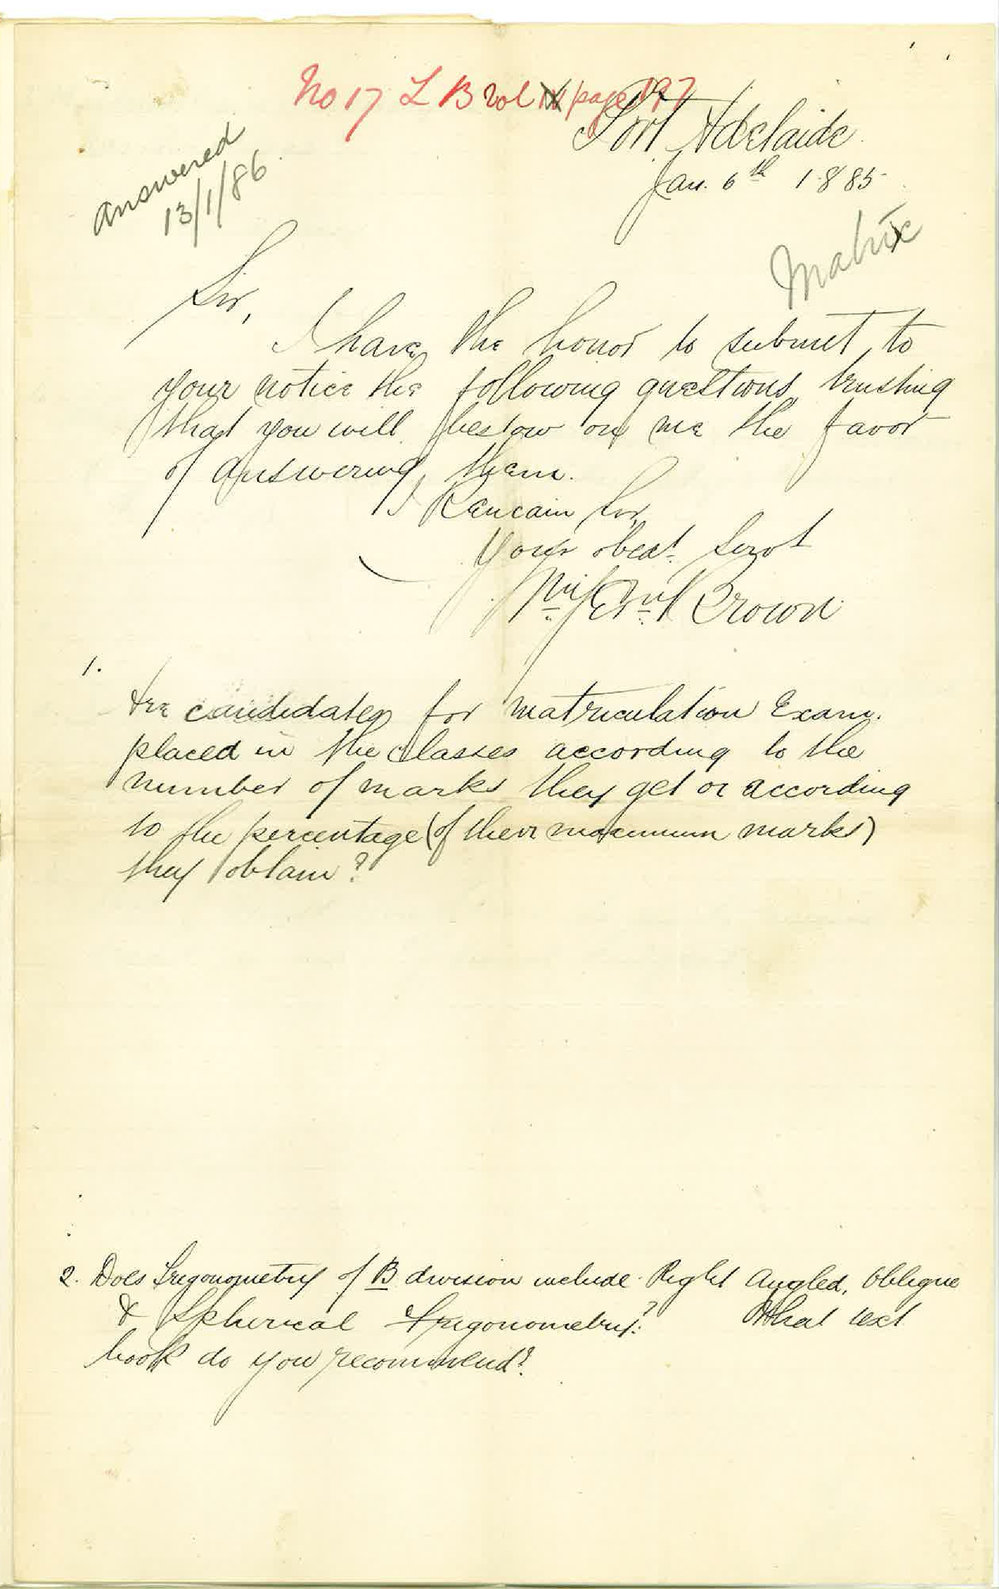 No 17 L B vol page 197
Port Adelaide
Jan. 6th 1885
Answered
13/1/86
Matric
Sir,
I have the honor to submit to
your notice the following questions trusting
that you will bestow on me the favor
of answering them.
I Remain Sir,
Your obedt. Servt
Brown
1.
Are candidates for Matriculation Exam.
placed in the classes according to the
number of marks they get or according
to the percentage (of their maximum marks)
they obtain?
2. Does Trigonometry of B division include Right Angled, Oblique
& Spherical Trigonometry? What text
book do you recommend?